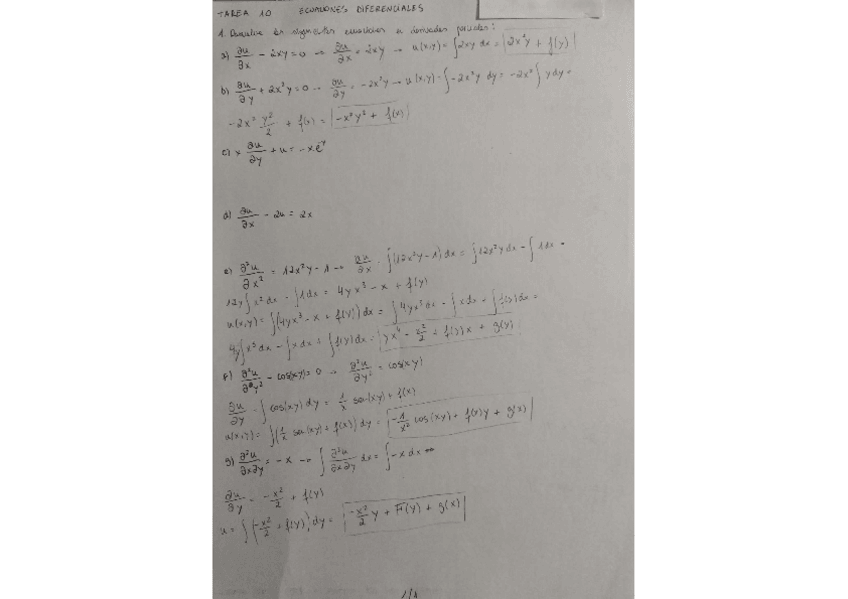 TAREA 10 ECUACIONES DIFERENCIALES
1. Resuelve las siguientes ecuaciones en derivadas parciales:
a) ∂u/∂x - 2xy = 0 → ∂u/∂x = 2xy → u(x,y) = ∫2xy dx = 2x²y + f(y)
b) ∂u/∂y + 2x²y = 0 → ∂u/∂y = -2x²y → u(x,y) = ∫-2x²y dy = -2x² ∫y dy =
-2x² y²/2 + f(x) = -x²y² + f(x)
c) x ∂u/∂y + u = -x
d) ∂u/∂x - 2u = 2x
e) ∂²u/∂x² = 12x²y - 1 → ∂u/∂x = ∫(12x²y - 1) dx = ∫12x²y dx - ∫1 dx =
12y ∫x² dx - ∫1 dx = 4yx³ - x + f(y)
u(x,y) = ∫(4yx³ - x + f(y)) dx = ∫4yx³ dx - ∫x dx + ∫f(y) dx =
4y ∫x³ dx - ∫x dx + ∫f(y) dx = yx⁴ - x²/2 + f(y)x + g(y)
f) ∂²u/∂y² - cos(xy) = 0 → ∂²u/∂y² = cos(xy)
∂u/∂y = ∫cos(xy) dy = 1/x sen(xy) + f(x)
u(x,y) = ∫(1/x sen(xy) + f(x)) dy = -1/x² cos(xy) + f(x)y + g(x)
g) ∂²u/∂x∂y = -x → ∫ ∂²u/∂x∂y dx = ∫-x dx
∂u/∂y = -x²/2 + f(y)
u = ∫(-x²/2 + f(y)) dy = -x²/2 y + F(y) + g(x)